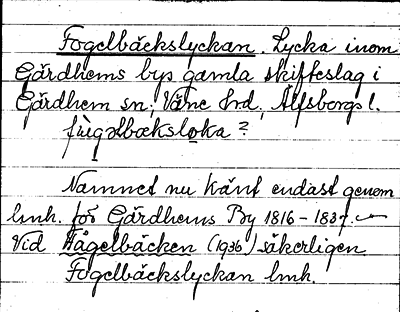 Fogelbäckslyckan. Lycka inom
Gärdhems bys gamla skifteslag i
Gärdhem sn, Väne hrd, Älfsborgs l.
fùgəlbœksloka?
Namnet nu känt endast genom
lmh. för Gärdhems By 1816-1837.
Vid Fågelbäcken (1936) säkerligen
Fogelbäckslyckan lmh.